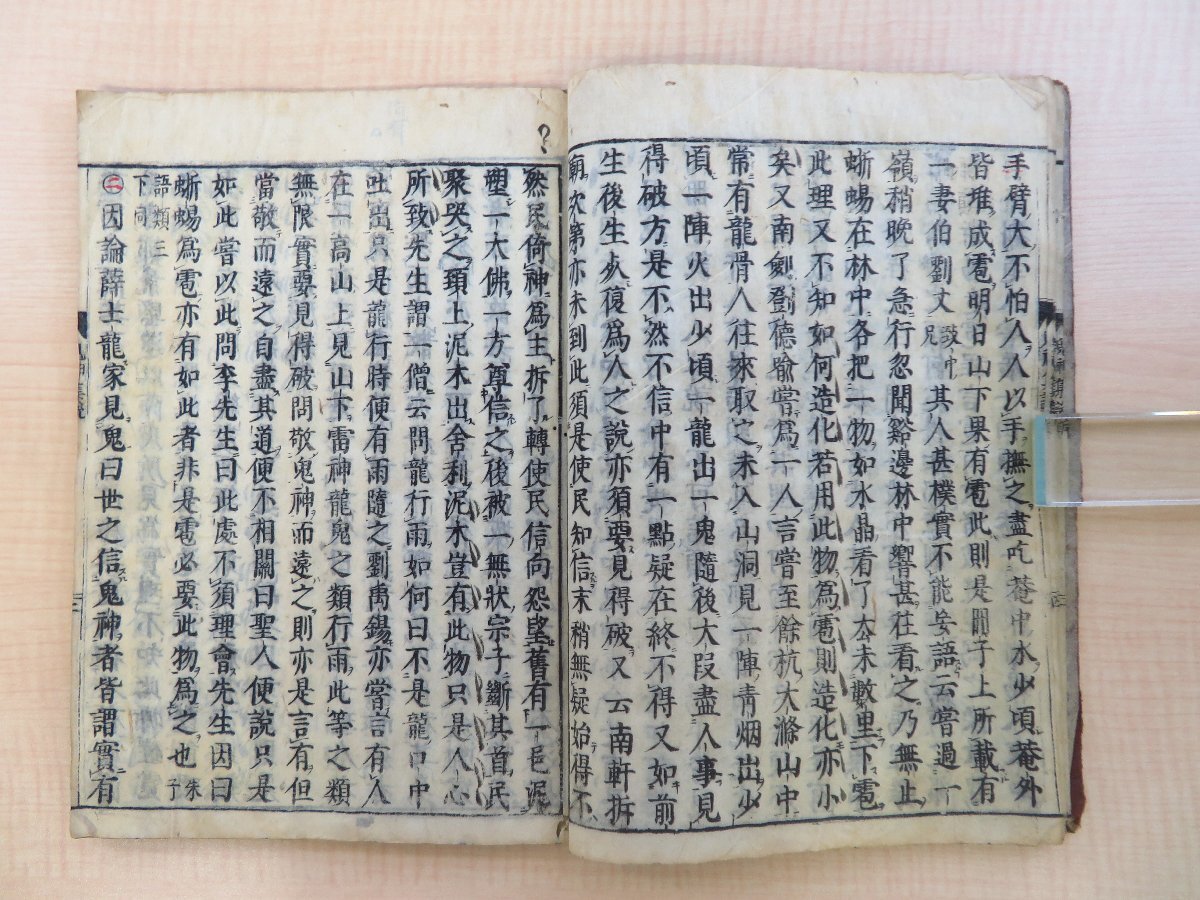 手臂大不怕人人以手撫之盡吃菴中水少頃菴外
皆堆成雹明日山下果有雹此則是聞子上所載有
一妻伯劉丈致中兄其人甚樸實不能妄語云嘗過一
嶺稍晚了急行忽聞谿邊林中響甚往看之乃無止
蜥蜴在林中各把一物如水晶看了去未數里下雹
此理又不知如何造化若用此物為雹則造化亦小
矣又南劍鄧德喻嘗為一人言嘗至餘杭大滌山中
常有龍骨人往來取之未入山洞見一陣青烟出少
頃一陣火出少頃一龍出一鬼隨後大段盡人事見
得破方是不然不信中有一點疑在終不得又如前
生後生死復為人之說亦須要見得破又云南軒拆
廟次第亦未到此須是使民知信末稍無疑始得不
然民倚神為主拆了轉使民信向怨望舊有一邑泥
塑一大佛一方尊信之後被一無狀宗子斷其首民
聚哭之頸上泥木出舍利泥木豈有此物只是人心
所致先生謂一僧云問龍行雨如何曰不是龍口中
吐出只是龍行時便有雨隨之劉禹錫亦嘗言有人
在一高山上見山下雷神龍鬼之類行雨此等之類
無限實要見得破問敬鬼神而遠之則亦是言有但
當敬而遠之自盡其道便不相關曰聖人便說只是
如此嘗以此問李先生曰此處不須理會先生因曰
蜥蜴為雹亦有如此者非是雹必要此物為之也朱子
語類三下同
二因論薛士龍家見鬼曰世之信鬼神者皆謂實有